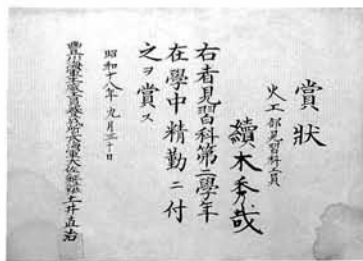 賞狀
火工部見習科工員
續木秀哉
右者見習科第二學年
在學中精勤ニ付
之ヲ賞ス
昭和十八年九月三十日
豊川海軍工廠
海軍大佐
土井直治